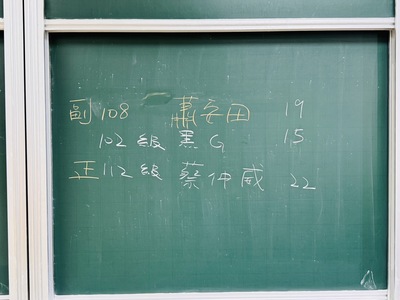 副 108 蕭安田 19
102 級 黑G 15
正 112 級 蔡仲威 22